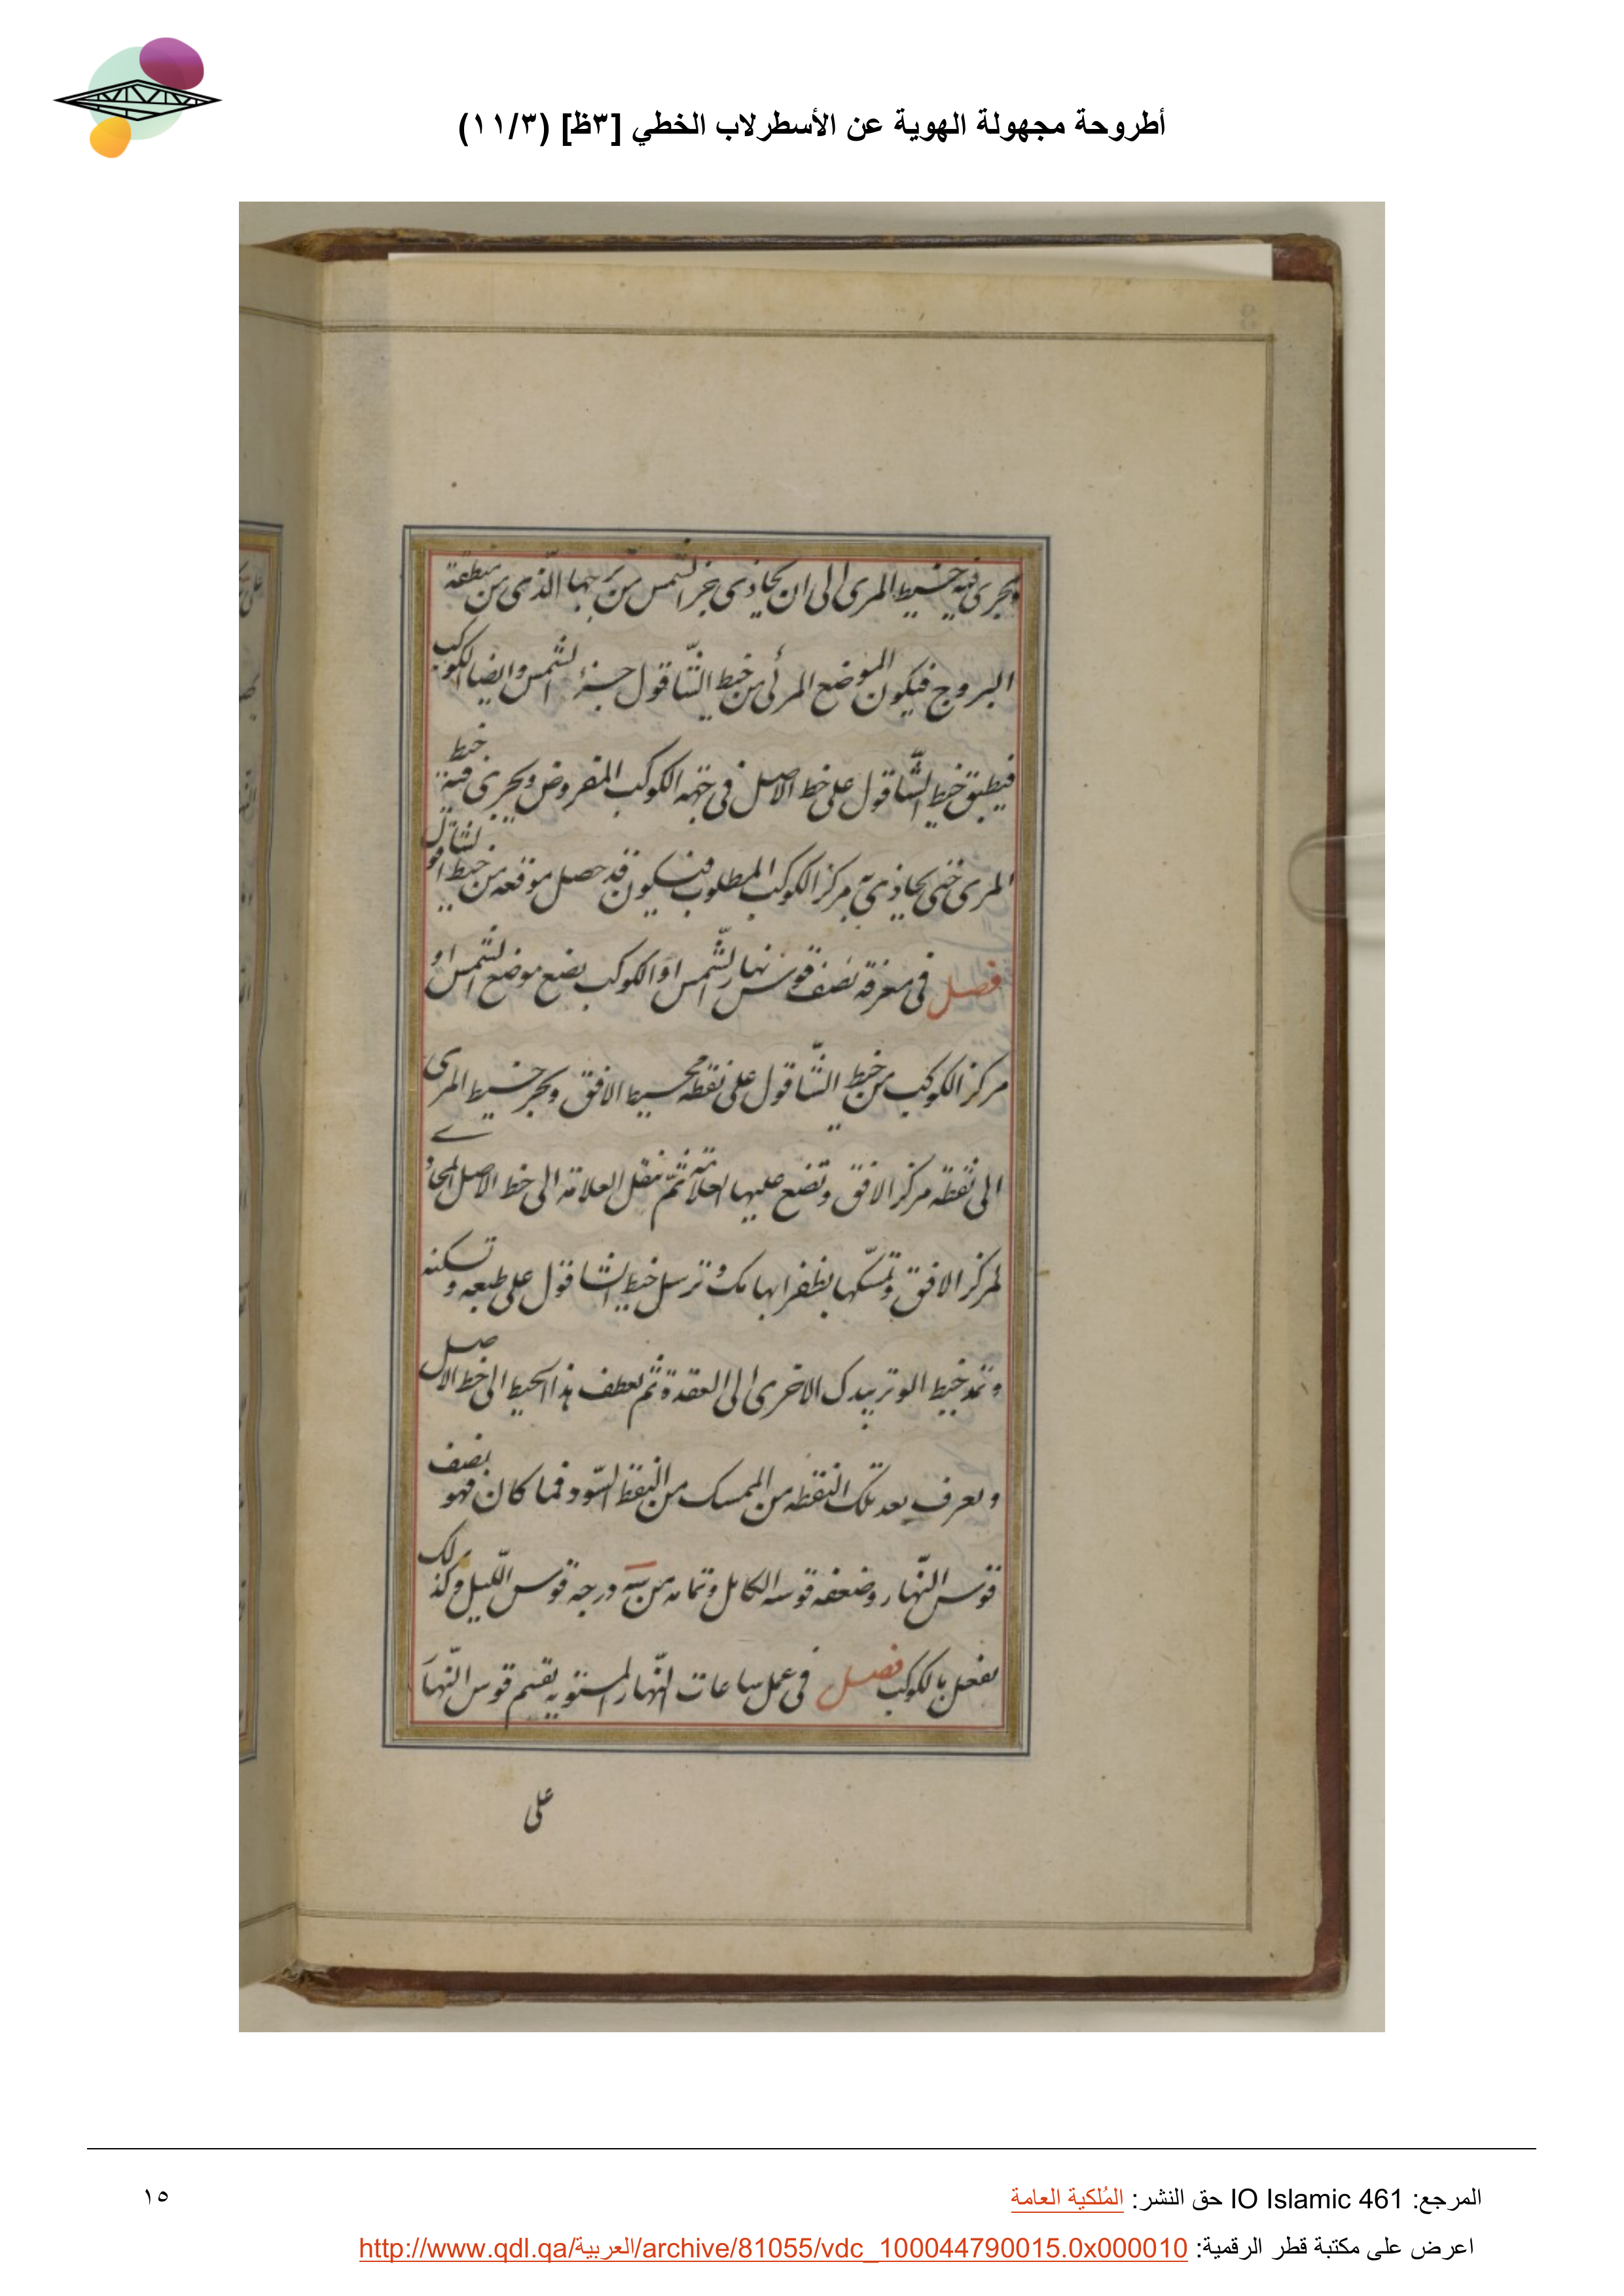 أطروحة مجهولة الهوية عن الأسطرلاب الخطي [٣ظ] (١١/٣)
ويجرى فيه خيط المرى الى ان يحاذى جزء الشمس من برجها الذى من منطقة
البروج فيكون الموضع المرئى من خيط الشاقول جزء الشمس وايضا الكوكب
فيطبق خيط الشاقول على خط الاصل فى جهة الكوكب المفروض ويجرى فيه خيط
المرى حتى يحاذى به مركز الكوكب المطلوب فيكون قد حصل موقعه من خيط الشاقول
فصل فى معرفة نصف قوس نهار الشمس او الكوكب يضع موضع الشمس او
مركز الكوكب من خيط الشاقول على نقطة محيط الافق ويجر خيط المرى
الى نقطة مركز الافق وتضع عليها العلامة ثم تنقل العلامة الى خط الاصل المحاذى
لمركز الافق وتمسكها بظفر ابهامك وترسل خيط الشاقول على طبعه وتسكنه
وتمد خيط الوتر بيدك الاخرى الى العقدة ثم تعطف هذا الخيط الى خط الاصل
وتعرف بعد تلك النقطة من الممسك من النقط السود فما كان فهو نصف
قوس النهار وضعفه قوسه الكامل وتمامه من درجة قوس الليل وكذلك
نفعل بالكوكب فصل فى عمل ساعات النهار المستوية يقسم قوس النهار
على
المرجع: IO Islamic 461 حق النشر: المُلكية العامة
١٥
اعرض على مكتبة قطر الرقمية: http://www.qdl.qa/العربية/archive/81055/vdc_100044790015.0x000010